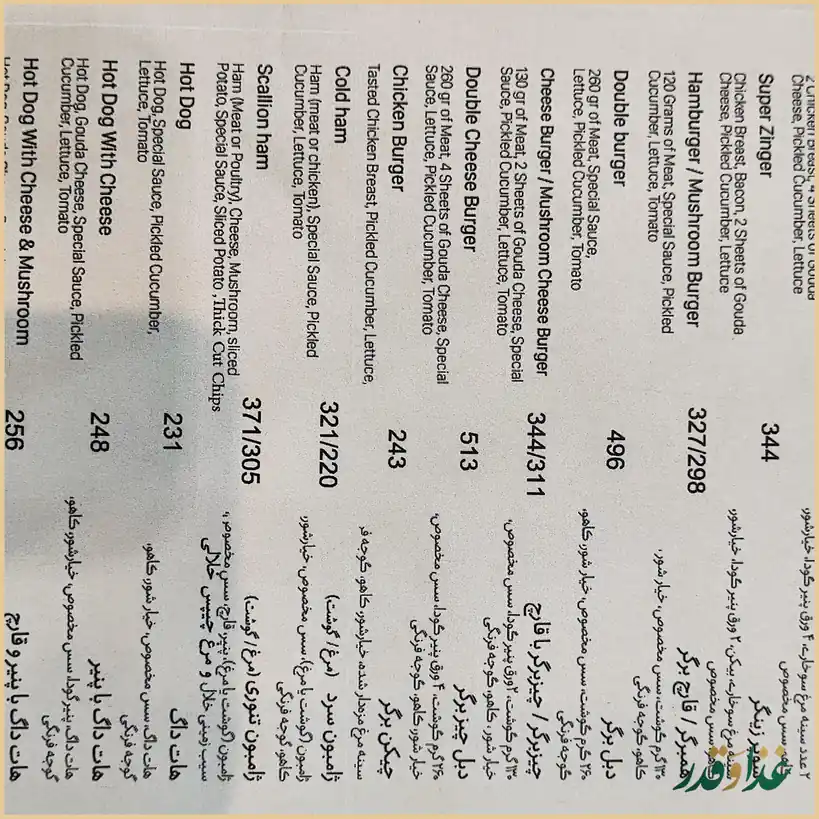 Cheese, Pickled Cucumber, Lettuce
۲ عدد سینه مرغ سوخاری، ۴ ورق پنیر گودا، خیارشور،
کاهو، سس مخصوص
Super Zinger
344
سوپر زینگر
Chicken Breast, Bacon, 2 Sheets of Gouda
Cheese, Pickled Cucumber, Lettuce
سینه مرغ سوخاری، بیکن، ۲ ورق پنیر گودا، خیارشور،
کاهو، سس مخصوص
Hamburger / Mushroom Burger
327/298
همبرگر / قارچ برگر
120 Grams of Meat, Special Sauce, Pickled
Cucumber, Lettuce, Tomato
۱۳۰ گرم گوشت، سس مخصوص، خیار شور،
کاهو، گوجه فرنگی
Double burger
496
دبل برگر
260 gr of Meat, Special Sauce,
Lettuce, Pickled Cucumber, Tomato
۲۶۰ گرم گوشت، سس مخصوص، خیار شور، کاهو،
گوجه فرنگی
Cheese Burger / Mushroom Cheese Burger
344/311
چیزبرگر / چیزبرگر با قارچ
130 gr of Meat, 2 Sheets of Gouda Cheese, Special
Sauce, Pickled Cucumber, Lettuce, Tomato
۱۳۰ گرم گوشت، ۲ ورق پنیر گودا، سس مخصوص،
خیار شور، کاهو، گوجه فرنگی
Double Cheese Burger
513
دبل چیزبرگر
260 gr of Meat, 4 Sheets of Gouda Cheese, Special
Sauce, Lettuce, Pickled Cucumber, Tomato
۲۶۰ گرم گوشت، ۴ ورق پنیر گودا، سس مخصوص،
خیار شور، کاهو، گوجه فرنگی
Chicken Burger
243
چیکن برگر
Tasted Chicken Breast, Pickled Cucumber, Lettuce,
سینه مرغ مزه‌دار شده، خیارشور، کاهو، گوجه فر
Cold ham
321/220
ژامبون سرد (مرغ / گوشت)
Ham (meat or chicken), Special Sauce, Pickled
Cucumber, Lettuce, Tomato
ژامبون (گوشت یا مرغ)، سس مخصوص، خیارشور،
کاهو، گوجه فرنگی
Scallion ham
371/305
ژامبون تنوری (مرغ / گوشت)
Ham (Meat or Poultry), Cheese, Mushroom, sliced
Potato, Special Sauce, Sliced Potato ,Thick Cut Chips
ژامبون (گوشت یا مرغ)، پنیر، قارچ، سس مخصوص،
سیب زمینی خلال و مرغ چیپس خلالی
Hot Dog
231
هات داگ
Hot Dog, Special Sauce, Pickled Cucumber,
Lettuce, Tomato
هات داگ، سس مخصوص، خیار شور، کاهو،
گوجه فرنگی
Hot Dog With Cheese
248
هات داگ با پنیر
Hot Dog, Gouda Cheese, Special Sauce, Pickled
Cucumber, Lettuce, Tomato
هات داگ، پنیر گودا، سس مخصوص، خیارشور، کاهو،
گوجه فرنگی
Hot Dog With Cheese & Mushroom
256
هات داگ با پنیر و قارچ
غذا و قدر